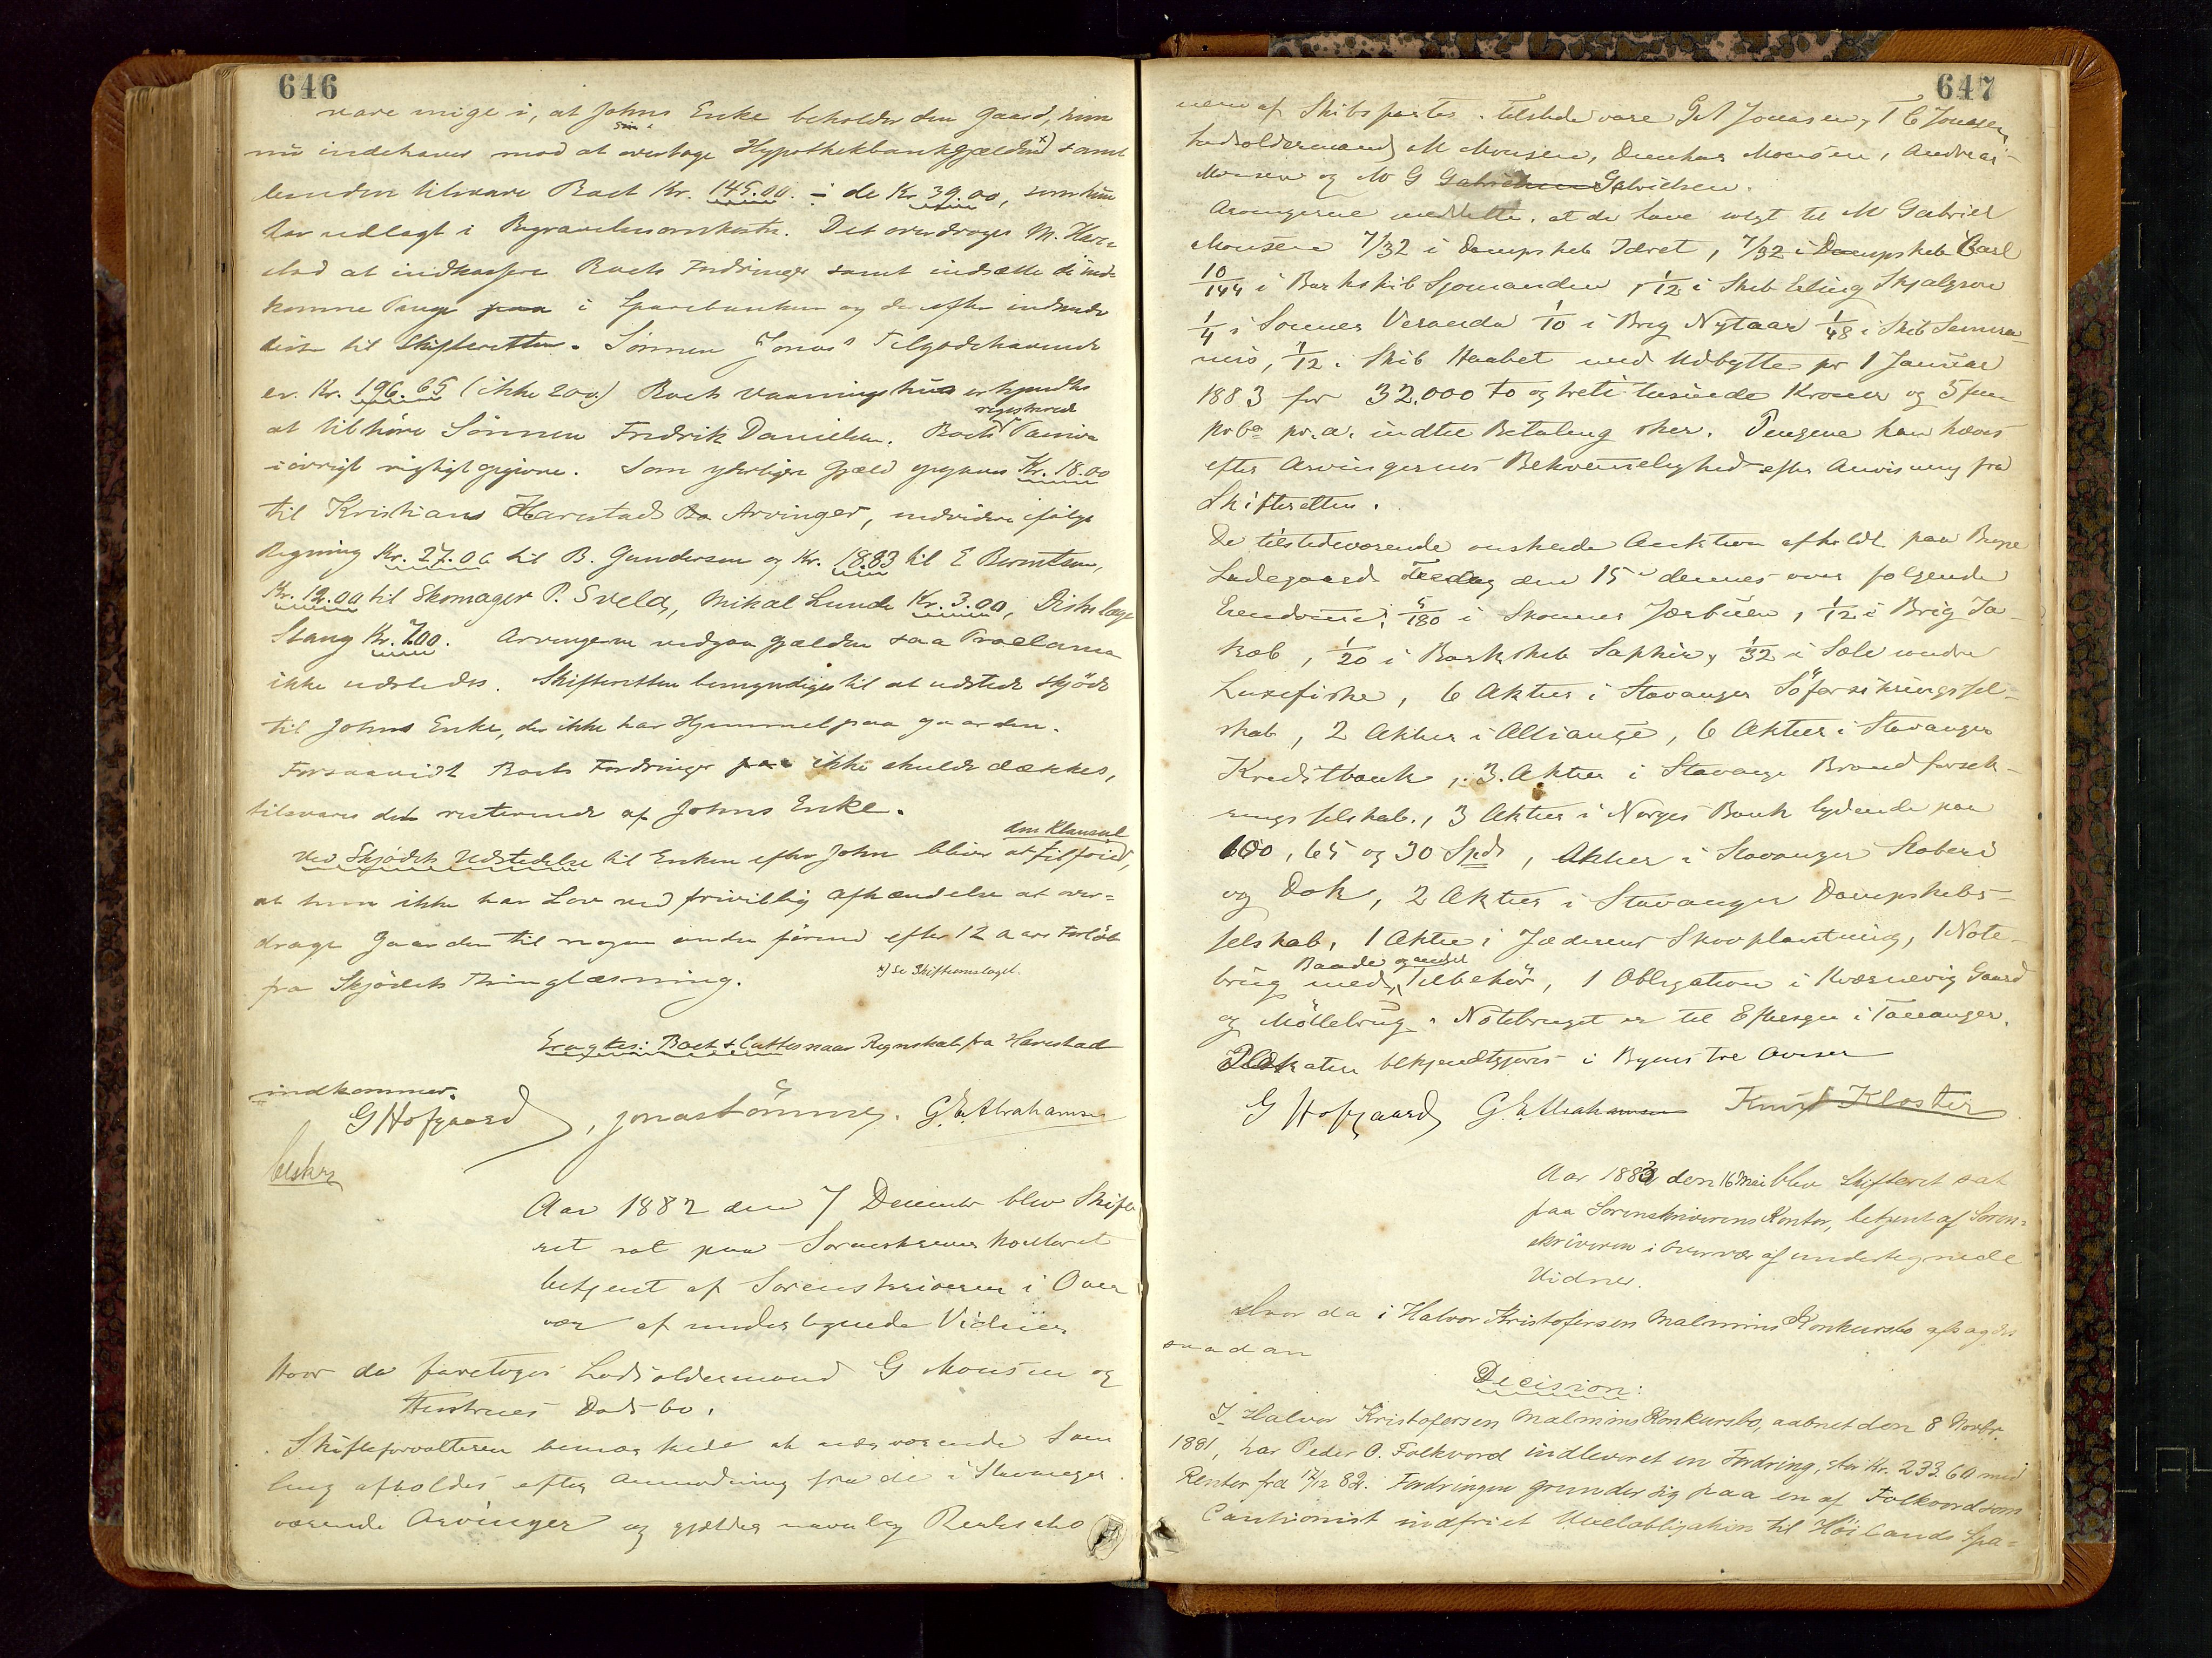 646
vare enige i, at Johns Enke beholder den Gaard, hun
nu indehaver mod at overtage Hypothekbankgjælden x) samt
desuden tilsvare Boet Kr. 145.00. ÷ de Kr. 39.00, som hun
har udlagt i Begravelsesomkostn. Det overdroges M. Hare-
stad at indkassere Boets Fordringer samt indsætte de ind-
komne Penge i Sparebanken og derefter indsende
disse til Skifteretten. Sönnen Jonas's Tilgodehavende
er Kr. 196.65 (ikke 200.) Boets Vaaningshus erkjendtes
registrerede
at tilhöre Sönnen Fredrik Danielsen. Boets Passiva
iövrigt rigtigt opgivne. Som yderligere Gjæld opgaves Kr. 18.00
til Kristians Harestads Arvinger, endvidere ifölge
Regning Kr. 27.00 til B. Gundersen og Kr. 18.83 til E Berentsen,
Kr. 12.00 til Skomager P. Sveld, Mikal Lunde Kr. 3.00, Distr. læge
Stang Kr. 7.00. Arvingerne vedgaa Gjælden saa Proclama
ikke udstedes. Skifteretten bemyndiges til at udstede Skjöde
til Johns Enke, der ikke har Hjemmel paa Gaarden.
Forsaavidt Boets Fordringer ikke skulde dækkes,
tilsvares det resterende af Johns Enke.
den Klausul
Ved Skjödets Udstedelse til Enken efter John bliver at tilföie,
at hun ikke har Lov ved frivillig Afhændelse at over-
drage Gaarden til nogen anden förend efter 12 Aars Forlöb
fra Skjödets Thinglæsning.
x) Se Skifteomslaget.
Eragtes: Boet sluttes naar Regnskab fra Harestad
indkommer.
G Hofgaard , Jonas Tömmey. G. E. Abrahamsen
Aar 1882 den 7 December blev Skifte
ret sat paa Sorenskriver Kontoret
betjent af Sorenskriveren i Over
vær af undertegnede Vidner
Hvor da foretoges Lodsoldermand G Monsen og
Hustrues Dödsbo.
Skifteforvalteren bemærkede at nærværende Sam
ling afholdes efter Anmodning fra de i Stavanger
værende Arvinger og gjælder navnlig Realisatio
647
nen af Skibsparter. Tilstede vare G A Jonasen, T C Jonasen
Lodsoldermand M Monsen, Monsen, Andreas
Monsen og M G Gabrielsen Gabrielsen.
Arvingerne meddelte, at de have solgt til M Gabriel
Monsen 7/32 i Dampskib Idræt, 7/32 i Dampskib Carl
10/144 i Barkskib Sjomanden, 1/12 i Skib Erling Skjalgson
1/4 i Sonner Veranda 1/10 i Brig Nytaar 1/48 i Skib Semira-
mis, 1/12 i Skib Haabet med Udbytte pr 1 Januar
1883 for 32.000 to og treti tusinde Kroner og 5 fem
pr. a. indtil Betaling sker. Pengene kan hæves
efter Arvingernes Bekvemmelighed efter Anvisning fra
Skifteretten.
De tilstedeværende onskede Auktion afholdt paa
Ladegaard Fredag den 15 dennes over folgende
Eiendomme: 5/180 i Skonner Jærbuen, 1/12 i Brig Ja-
kob, 1/20 i Barkskib Saphir, 1/32 i Sele
Laxefiske, 6 Aktier i Stavanger Söforsikringssel-
skab, 2 Aktier i Alliance, 6 Aktier i Stavanger
Kreditbank, 3 Aktier i Stavanger Brandforsik-
ringsselskab., 3 Aktier i Norges Bank lydende paa
100, 65 og 30 Spd, Aktier i Stavanger Stoberi
og Dok, 2 Aktier i Stavanger Dampskibs-
selskab, 1 Aktie i Jæderens Skovplantning, 1 Note-
Baade og andet
brug med Tilbehör, 1 Obligation i Kvernevig Gaard
og Möllebrug. Notebruget er til Eftersyn i Tananger.
Plakaten bekjendtgjøres i Byens tre Aviser
G Hofgaard G. E. Abrahamsen Knud Kloster
Aar 1883 den 16 Mai blev Skifteret sat
paa Sorenskriverens Kontor, betjent af Soren-
skriveren i Overvær af undertegnede
Vidner.
Hvor da i Halvor Kristofersen Malmins Konkursbo afsagdes
saadan
Decision:
I Halvor Kristofersen Malmins Konkursbo, aabnet den 8 Novbr.
1881, har Peder O. Folkvord indleveret en Fordring, stor Kr. 233.60 med
Renter fra 12/12 82. Fordringen grunder sig paa en af Folkvord som
Cautionist indfriet Vexelobligation til Höilands Spa-